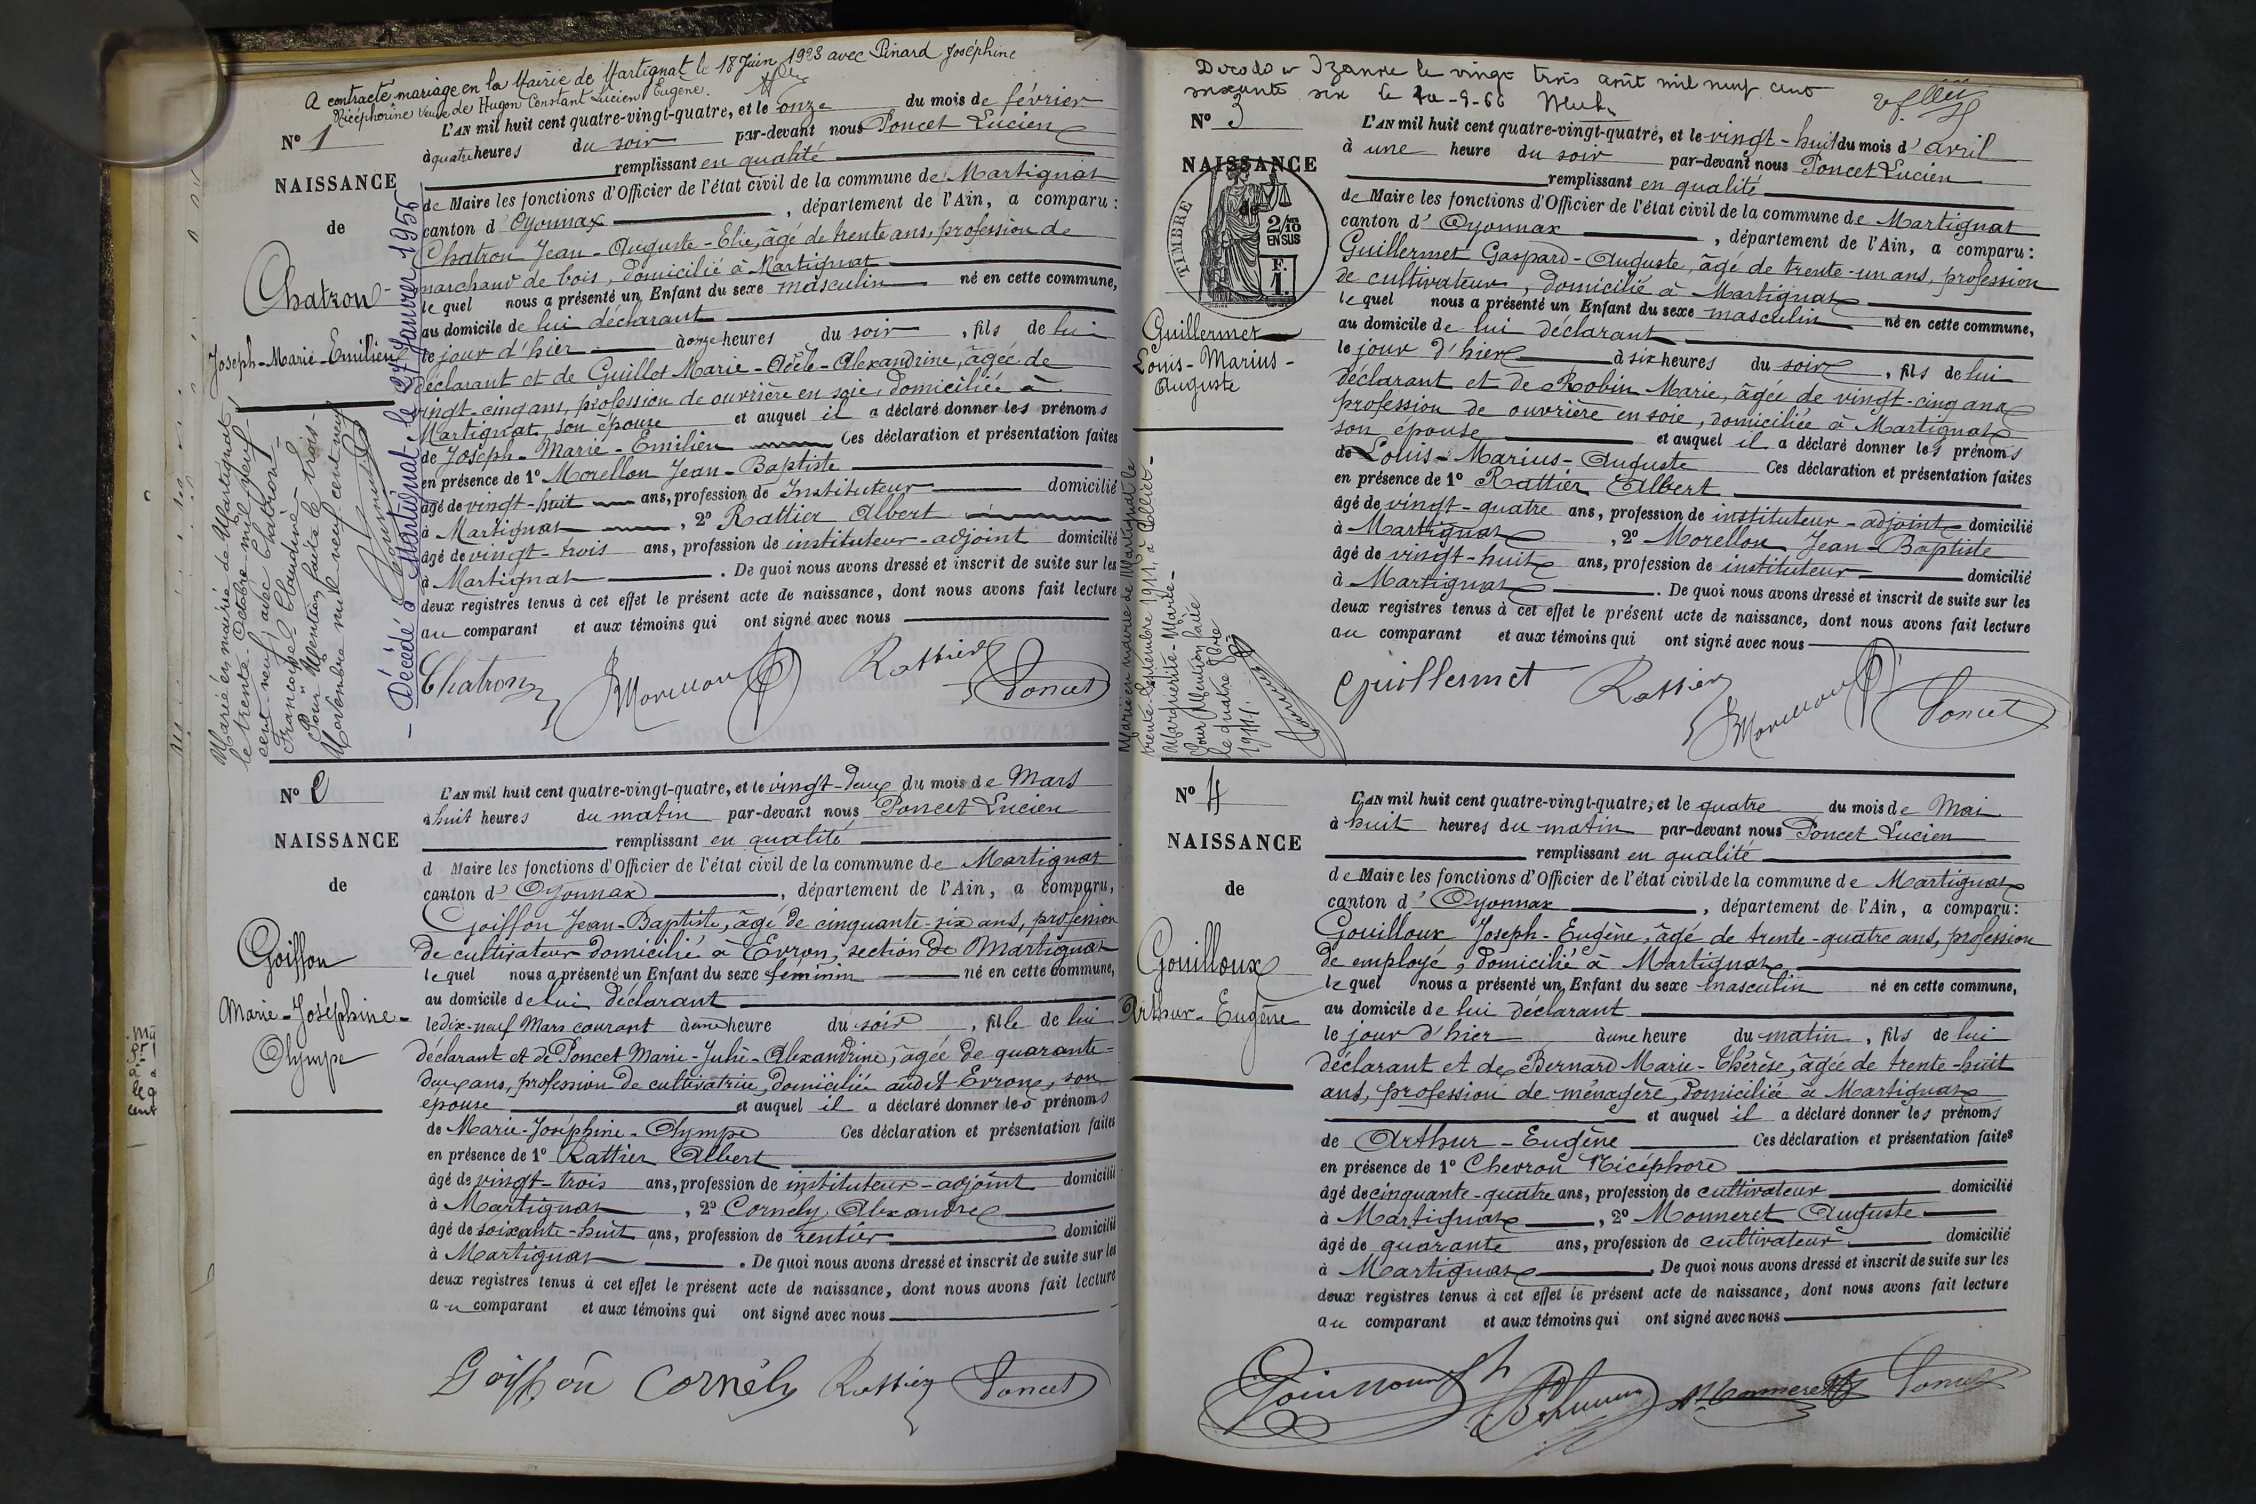 A contracté mariage en la Mairie de Martignat le 18 Juin 1923 avec Pinard Joséphine
Nicéphorine veuve de Hugon Constant Lucien Eugène.
N° 1
NAISSANCE
de
Chatron
Joseph-Marie-Emilien
Marié en mairie de Martignat,
le trente Octobre mil neuf
cent neuf, avec Chatron
Françoise Claudine
Pour Mention faite le trois
Novembre mil neuf cent neuf
- Décédé à Martignat, le 27 Janvier 1956
L'AN mil huit cent quatre-vingt-quatre, et le onze du mois de février
à quatre heures du soir par-devant nous Poncet Lucien
remplissant en qualité
de Maire les fonctions d'Officier de l'état civil de la commune de Martignat
canton d'Oyonnax, département de l'Ain, a comparu:
Chatron Jean-Auguste-Elie, âgé de trente ans, profession de
marchand de bois, domicilié à Martignat
le quel nous a présenté un Enfant du sexe masculin né en cette commune,
au domicile de lui déclarant
le jour d'hier à onze heures du soir, fils de lui
déclarant et de Guillot Marie-Adèle-Alexandrine, âgée de
vingt-cinq ans, profession de ouvrière en soie, domiciliée à
Martignat, son épouse et auquel il a déclaré donner les prénoms
de Joseph-Marie-Emilien Ces déclaration et présentation faites
en présence de 1° Morellon Jean-Baptiste
âgé de vingt-huit ans, profession de Instituteur domicilié
à Martignat, 2° Rattier Albert
âgé de vingt-trois ans, profession de instituteur-adjoint domicilié
à Martignat. De quoi nous avons dressé et inscrit de suite sur les
deux registres tenus à cet effet le présent acte de naissance, dont nous avons fait lecture
au comparant et aux témoins qui ont signé avec nous
Chatron Morellon Rattier Poncet
N° 2
NAISSANCE
de
Goiffon
Marie-Joséphine-
Olympe
L'AN mil huit cent quatre-vingt-quatre, et le vingt-deux du mois de Mars
à huit heures du matin par-devant nous Poncet Lucien
remplissant en qualité
d Maire les fonctions d'Officier de l'état civil de la commune de Martignat
canton d'Oyonnax, département de l'Ain, a comparu,
Goiffon Jean-Baptiste, âgé de cinquante-six ans, profession
de cultivateur domicilié à Evron, section de Martignat
le quel nous a présenté un Enfant du sexe féminin né en cette commune,
au domicile de lui déclarant
le dix-neuf Mars courant à une heure du soir, fille de lui
déclarant et de Poncet Marie-Julie-Alexandrine, âgée de quarante-
deux ans, profession de cultivatrice, domiciliée audit Evron, son
épouse et auquel il a déclaré donner les prénoms
de Marie-Joséphine-Olympe Ces déclaration et présentation faites
en présence de 1° Rattier Albert
âgé de vingt-trois ans, profession de instituteur-adjoint domicilié
à Martignat, 2° Cornely Alexandre
âgé de soixante-huit ans, profession de rentier domicilié
à Martignat. De quoi nous avons dressé et inscrit de suite sur les
deux registres tenus à cet effet le présent acte de naissance, dont nous avons fait lecture
au comparant et aux témoins qui ont signé avec nous
Goiffon Cornély Rattier Poncet
Décédé à Izanve le vingt trois août mil neuf cent
soixante six
N° 3
NAISSANCE
de
TIMBRE
2/10
EN SUS
F.
1.
Guillermet
Louis-Marius-
Auguste
Marié en mairie de Martignat le
trente Septembre 1911, à Colliet-
Marguerite-Marie-
Pour Mention faite
le quatre 8bre
1911.
L'AN mil huit cent quatre-vingt-quatre, et le vingt-huit du mois d'avril
à une heure du soir par-devant nous Poncet Lucien
remplissant en qualité
de Maire les fonctions d'Officier de l'état civil de la commune de Martignat
canton d'Oyonnax, département de l'Ain, a comparu:
Guillermet Gaspard-Auguste, âgé de trente-un ans, profession
de cultivateur, domicilié à Martignat
le quel nous a présenté un Enfant du sexe masculin né en cette commune,
au domicile de lui déclarant
le jour d'hier à six heures du soir, fils de lui
déclarant et de Robin Marie, âgée de vingt-cinq ans
profession de ouvrière en soie, domiciliée à Martignat
son épouse et auquel il a déclaré donner les prénoms
de Louis-Marius-Auguste Ces déclaration et présentation faites
en présence de 1° Rattier Albert
âgé de vingt-quatre ans, profession de instituteur-adjoint domicilié
à Martignat, 2° Morellon Jean-Baptiste
âgé de vingt-huit ans, profession de instituteur domicilié
à Martignat. De quoi nous avons dressé et inscrit de suite sur les
deux registres tenus à cet effet le présent acte de naissance, dont nous avons fait lecture
au comparant et aux témoins qui ont signé avec nous
Guillermet Rattier Morellon Poncet
N° 4
NAISSANCE
de
Gouilloux
Arthur-Eugène
L'AN mil huit cent quatre-vingt-quatre, et le quatre du mois de Mai
à huit heures du matin par-devant nous Poncet Lucien
remplissant en qualité
de Maire les fonctions d'Officier de l'état civil de la commune de Martignat
canton d'Oyonnax, département de l'Ain, a comparu:
Gouilloux Joseph-Eugène, âgé de trente-quatre ans, profession
de employé, domicilié à Martignat
le quel nous a présenté un Enfant du sexe masculin né en cette commune,
au domicile de lui déclarant
le jour d'hier à une heure du matin, fils de lui
déclarant et de Bernard Marie-Thérèse, âgée de trente-huit
ans, profession de ménagère, domiciliée à Martignat
et auquel il a déclaré donner les prénoms
de Arthur-Eugène Ces déclaration et présentation faites
en présence de 1° Chevron Nicéphore
âgé de cinquante-quatre ans, profession de cultivateur domicilié
à Martignat, 2° Monneret Auguste
âgé de quarante ans, profession de cultivateur domicilié
à Martignat. De quoi nous avons dressé et inscrit de suite sur les
deux registres tenus à cet effet le présent acte de naissance, dont nous avons fait lecture
au comparant et aux témoins qui ont signé avec nous
Monneret Poncet